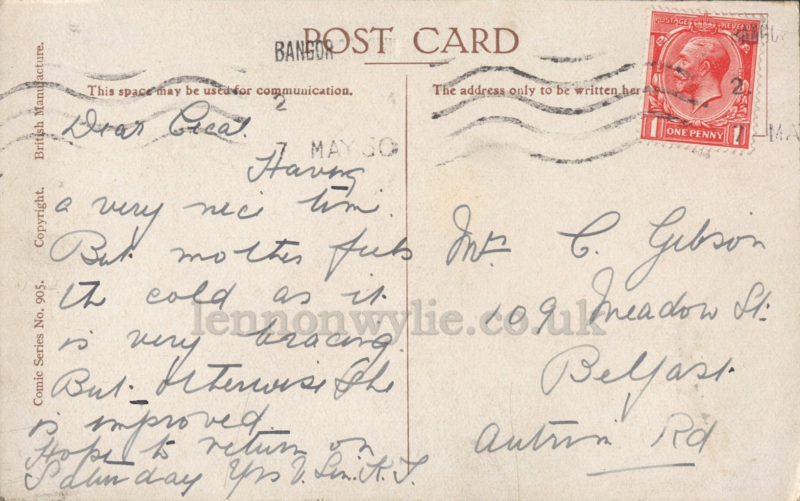 POST CARD
BANGOR
This space may be used for communication.
The address only to be written her
British Manufacture.
Copyright.
Comic Series No. 905.
2
7 MAY 30
BANGO
2
MA
POSTAGE REVENUE
1 ONE PENNY 1
Dear Cecal.
Having
a very nice time.
But mother feels
the cold as it
is very bracing.
But otherwise she
is improved
Hope to return on
Saturday Yrs
Mr C. Gibson
109 Meadow St.
Belfast
Antrim Rd
lennonwylie.co.uk